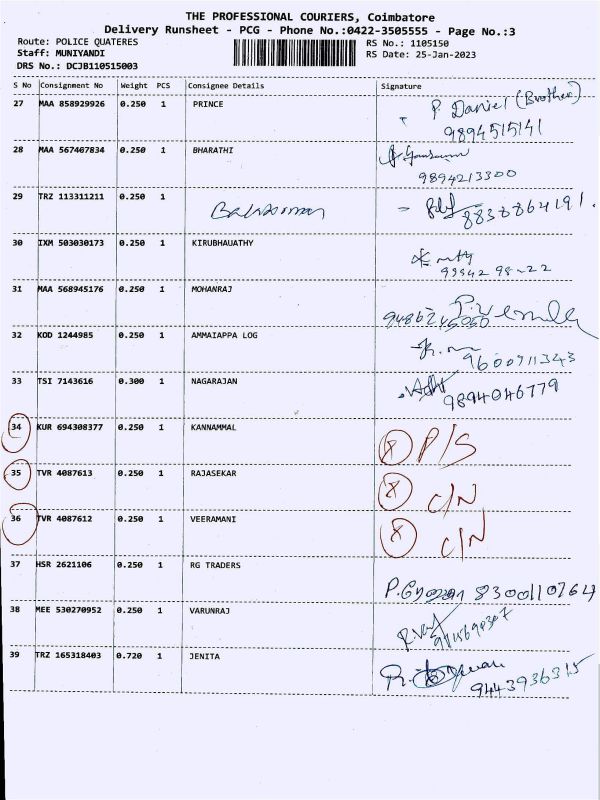 THE PROFESSIONAL COURIERS, Coimbatore
Delivery Runsheet - PCG - Phone No.:0422-3505555 - Page No.:3
Route: POLICE QUATERES
Staff: MUNIYANDI
DRS No.: DCJB110515003
RS No.: 1105150
RS Date: 25-Jan-2023
S No Consignment No Weight PCS Consignee Details Signature
27 MAA 858929926 0.250 1 PRINCE P. Daniel (Brother)
9894515141
28 MAA 567407834 0.250 1 BHARATHI
9894213300
29 TRZ 113311211 0.250 1
30 IXM 503030173 0.250 1 KIRUBHAUATHY
99942 98-22
31 MAA 568945176 0.250 1 MOHANRAJ
32 KOD 1244985 0.250 1 AMMAIAPPA LOG
9600911343
33 TSI 7143616 0.300 1 NAGARAJAN
9894046779
34 KUR 694308377 0.250 1 KANNAMMAL P/S
35 TVR 4087613 0.250 1 RAJASEKAR C/N
36 TVR 4087612 0.250 1 VEERAMANI C/N
37 HSR 2621106 0.250 1 RG TRADERS
8300110764
38 MEE 530270952 0.250 1 VARUNRAJ
39 TRZ 165318403 0.720 1 JENITA
9443936315